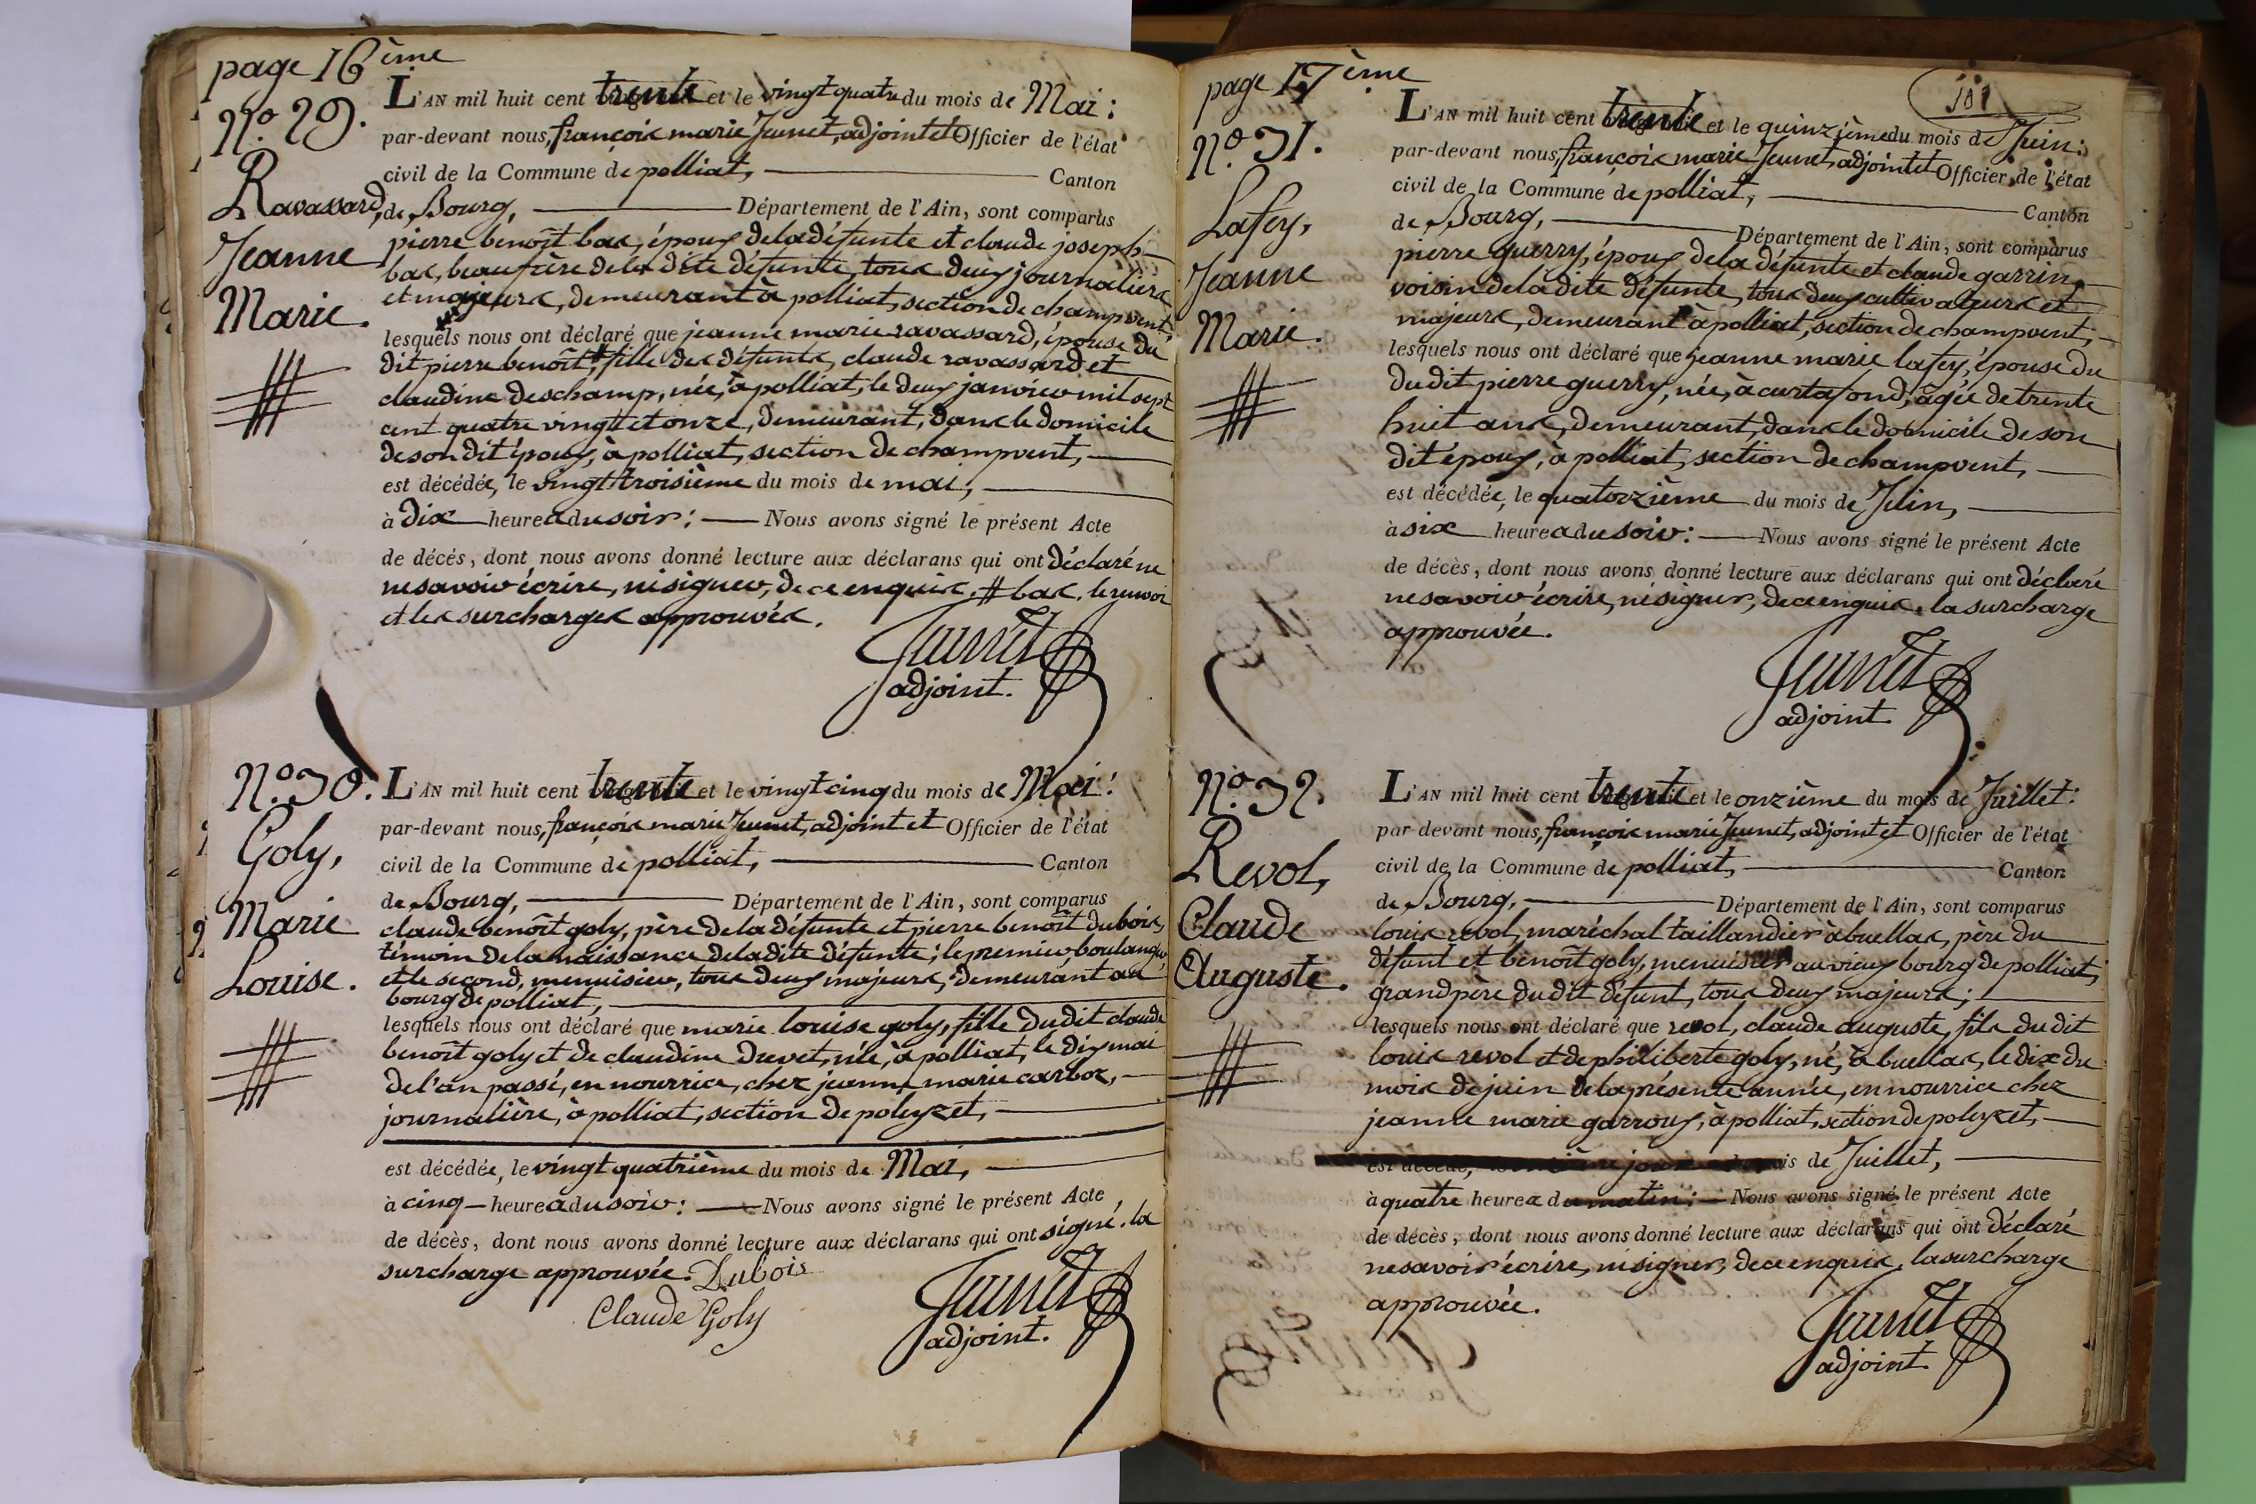 page 16ème
N.º 29.
Ravassard,
Jeanne
Marie.
L'AN mil huit cent trente et le vingt quatre du mois de Mai :
par-devant nous, françois marie Jeunet, adjoint et Officier de l'état
civil de la Commune de polliat, Canton
de Bourg, Département de l'Ain, sont comparus
pierre benoît bas, époux de la défunte et claude joseph
bas, beaufrère de la dite défunte, tous deux journaliers
et majeurs, demeurant à polliat, section de champvent,
lesquels nous ont déclaré que jeanne marie ravassard, épouse du
dit pierre benoît # fille des défunts, claude ravassard et
claudine deschamp, née, à polliat, le deux janvier mil sept
cent quatre vingt et onze, demeurant, dans le domicile
de son dit époux, à polliat, section de champvent,
est décédée, le vingt troisième du mois de mai,
à dix heures du soir ; Nous avons signé le présent Acte
de décès, dont nous avons donné lecture aux déclarans qui ont déclaré ne
ne savoir écrire, ni signer, de ce enquis. # bas. le renvoi
et les surcharges approuvés.
Jeunet
adjoint.
N.º 30.
Goly,
Marie
Louise.
L'AN mil huit cent trente et le vingt cinq du mois de Mai :
par-devant nous, françois marie Jeunet, adjoint et Officier de l'état
civil de la Commune de polliat, Canton
de Bourg, Département de l'Ain, sont comparus
claude benoît goly, père de la défunte et pierre benoît dubois,
témoin de la naissance de la dite défunte ; le premier, boulanger
et le second, menuisier, tous deux majeurs, demeurant au
bourg de polliat,
lesquels nous ont déclaré que marie louise goly, fille du dit claude
benoît goly et de claudine drevet, née, à polliat, le dix mai
de l'an passé, en nourrice, chez jeanne marie carboz,
journalière, à polliat, section de poleyzet,
est décédée, le vingt quatrième du mois de Mai,
à cinq heures du soir : Nous avons signé le présent Acte
de décès, dont nous avons donné lecture aux déclarans qui ont signé. la
surcharge approuvée. Dubois
Claude Goly
Jeunet
adjoint.
page 17ème
101
N.º 31.
Lafey,
Jeanne
Marie.
L'AN mil huit cent trente et le quinzième du mois de Juin :
par-devant nous, françois marie Jeunet, adjoint et Officier de l'état
civil de la Commune de polliat, Canton
de Bourg, Département de l'Ain, sont comparus
pierre guerry, époux de la défunte et claude garrin,
voisin de la dite défunte, tous deux cultivateurs et
majeurs, demeurant à polliat, section de champvent,
lesquels nous ont déclaré que jeanne marie lafey, épouse du
du dit pierre guerry, née, à curtafond, âgée de trente
huit ans, demeurant, dans le domicile de son
dit époux, à polliat, section de champvent,
est décédée, le quatorzième du mois de Juin,
à six heures du soir : Nous avons signé le présent Acte
de décès, dont nous avons donné lecture aux déclarans qui ont déclaré
ne savoir écrire, ni signer, de ce enquis. la surcharge
approuvée.
Jeunet
adjoint.
N.º 32.
Revol,
Claude
Auguste.
L'AN mil huit cent trente et le onzième du mois de Juillet :
par devant nous, françois marie Jeunet, adjoint et Officier de l'état
civil de la Commune de polliat, Canton
de Bourg, Département de l'Ain, sont comparus
louis revol, maréchal taillandier à buellas, père du
défunt et benoît goly, menuisier au vieux bourg de polliat,
grandpère du dit défunt, tous deux majeurs ;
lesquels nous ont déclaré que revol, claude auguste, fils du dit
louis revol et de philiberte goly, né, à buellas, le dix du
mois de juin de la présente année, en nourrice chez
jeanne marie garroux, à polliat, section de poleyzet,
est décédé, jour mois de Juillet,
à quatre heures du matin ; Nous avons signé le présent Acte
de décès, dont nous avons donné lecture aux déclarans qui ont déclaré
ne savoir écrire, ni signer, de ce enquis. la surcharge
approuvée.
Jeunet
adjoint.